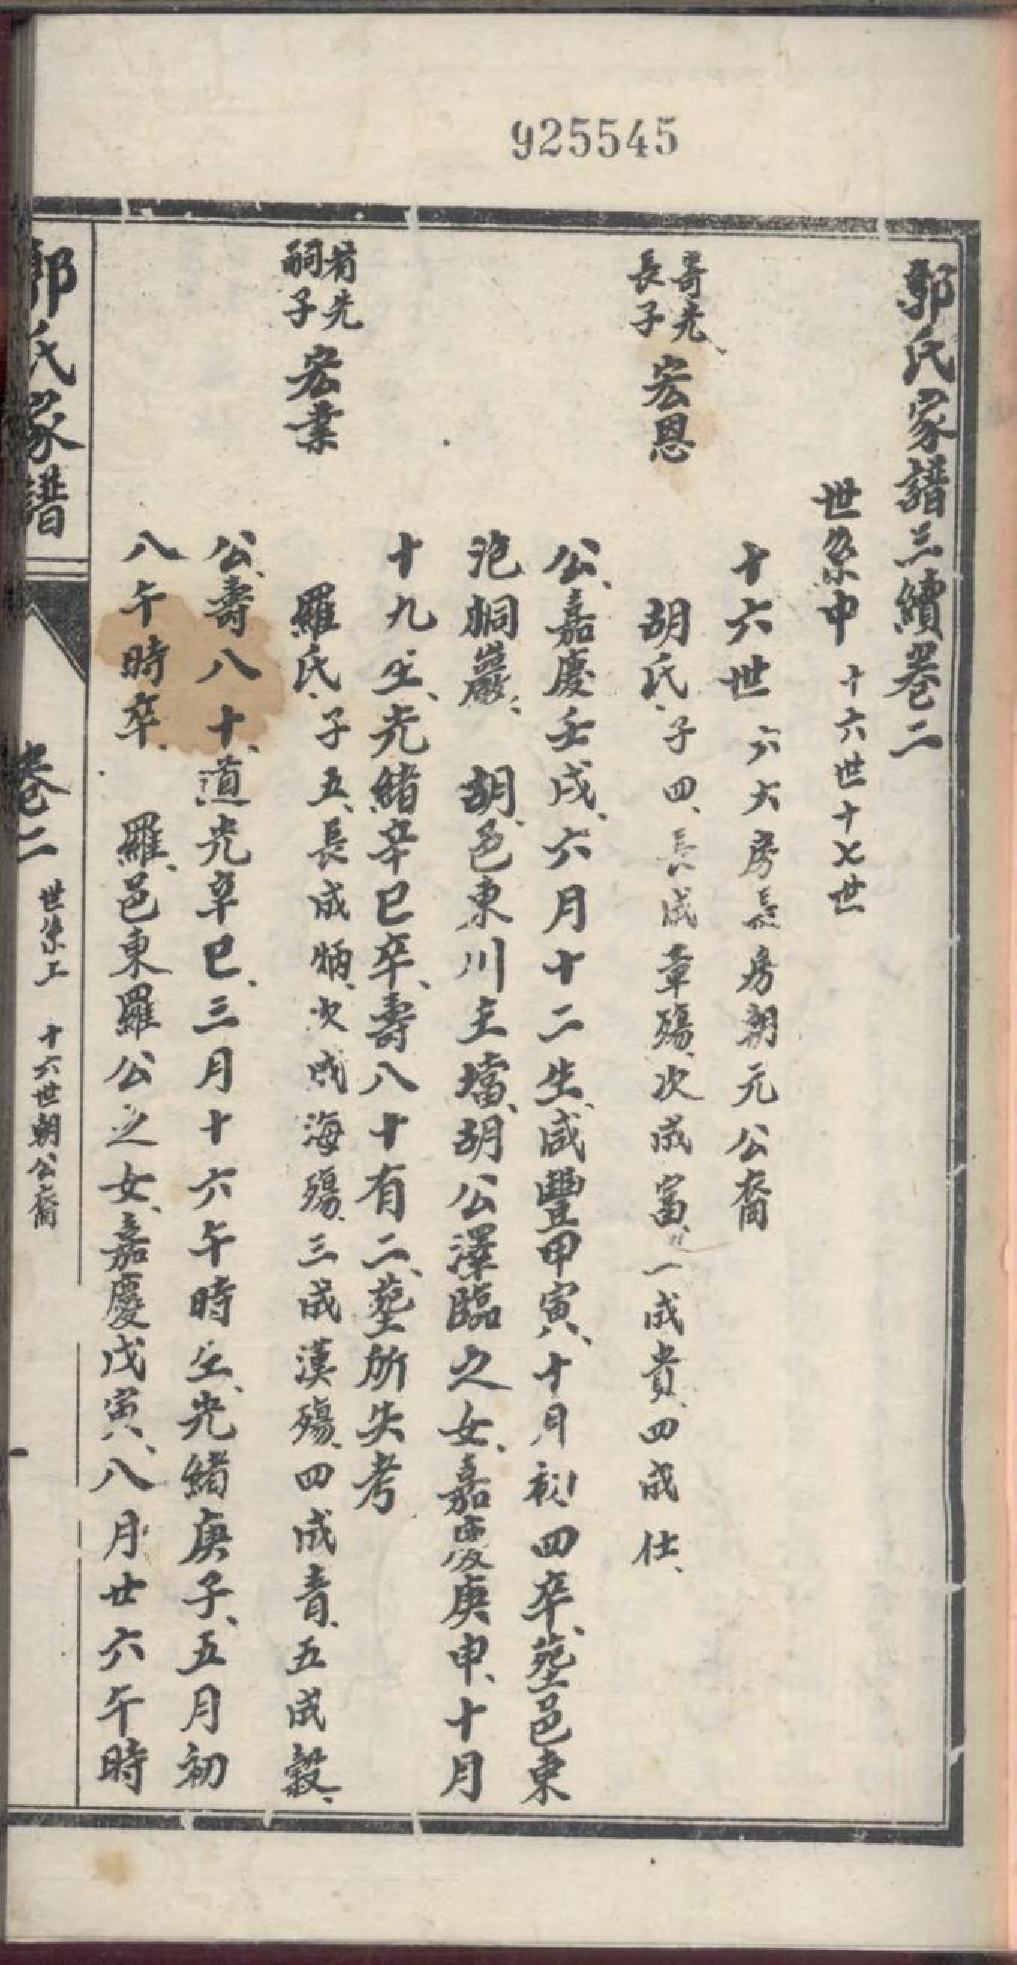 925545
郭氏家譜三續卷二
世系中 十六世十七世
十六世 六大房長房朝元公裔
哥先長子 宏恩 胡氏、子四、長成章殤、次成富、一成貴、四成仕、
公、嘉慶壬戌、六月十二生、咸豐甲寅、十月初四卒、塟邑東
池峒巖、 胡、邑東川主壋、胡公澤臨之女、嘉慶庚申、十月
十九生、光緒辛巳卒、壽八十有二、塟所失考
先嗣子 宏業 羅氏、子五、長成炳、次成海殤、三成漢殤、四成音、五成穀、
公、壽八十、道光辛巳、三月十六午時生、光緒庚子、五月初
八午時卒、 羅、邑東羅公之女、嘉慶戊寅、八月廿六午時
郭氏家譜 卷二 世系 十六世朝公裔